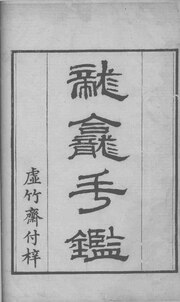 龍龕手鑑
虛竹齋付梓